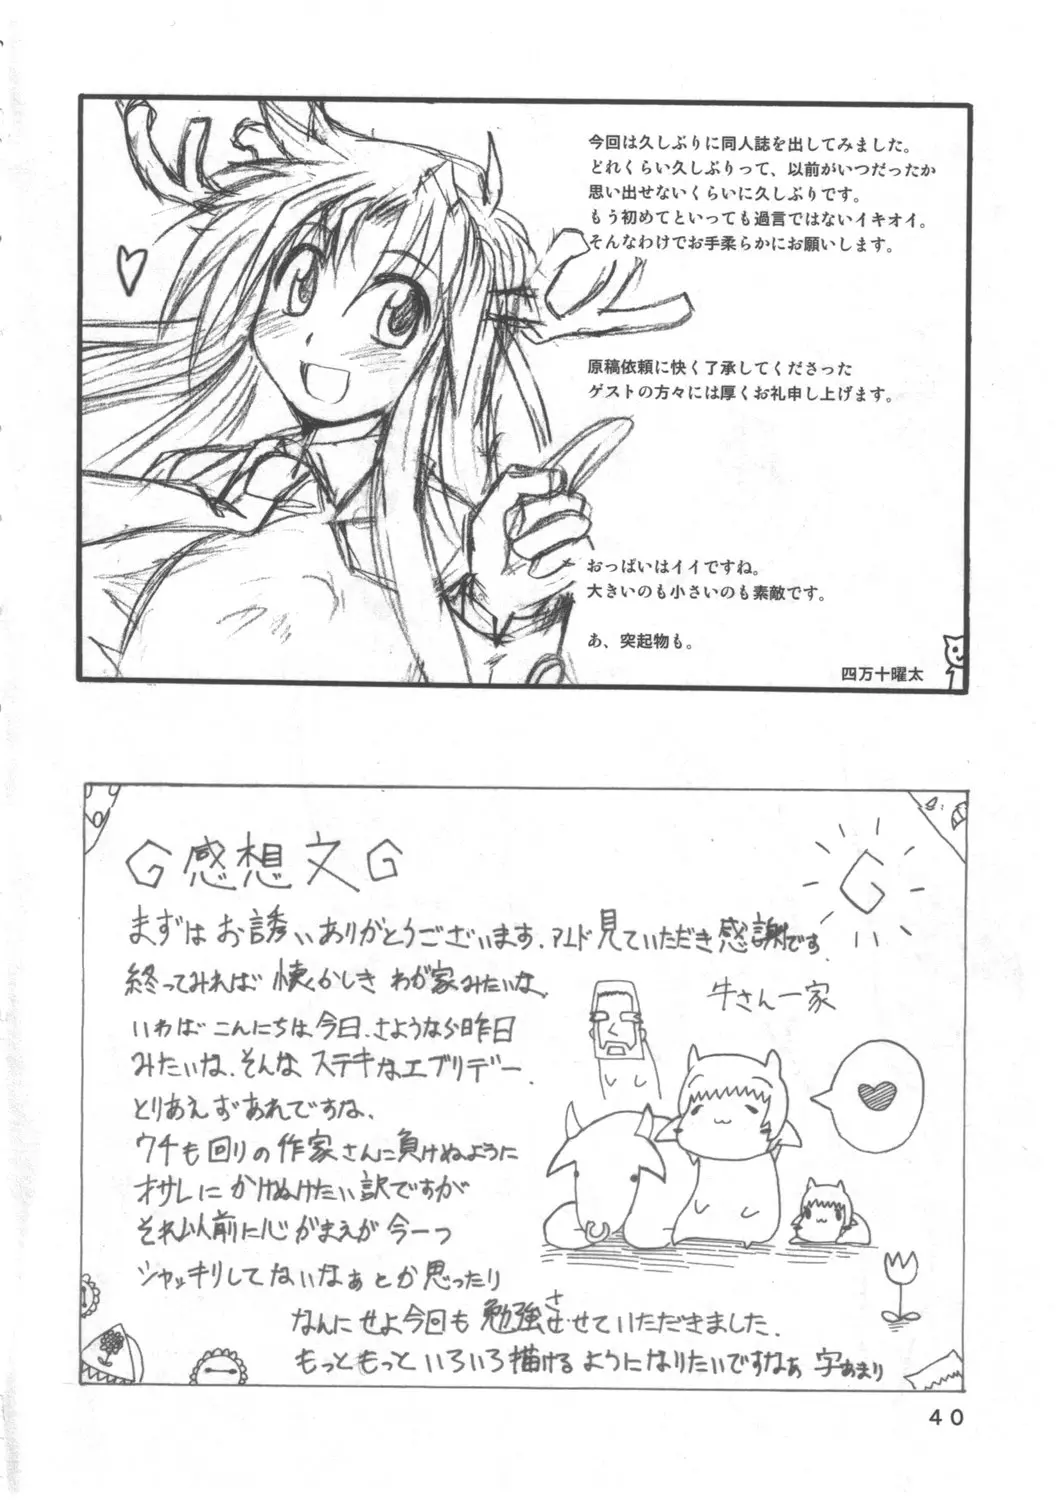 今回は久しぶりに同人誌を出してみました。
どれくらい久しぶりって、以前がいつだったか
思い出せないくらいに久しぶりです。
もう初めてといっても過言ではないイキオイ。
そんなわけでお手柔らかにお願いします。
原稿依頼に快く了承してくださった
ゲストの方々には厚くお礼申し上げます。
おっぱいはイイですね。
大きいのも小さいのも素敵です。
あ、突起物も。
四万十曜太
G感想文G
まずはお誘いありがとうございます、アンド見ていただき感謝です。
終ってみれば懐かしき わが家みたいな、
いわばこんにちは今日、さようなら昨日
みたいな、そんなステキなエブリデー、
とりあえずあれですな、
ウチも回りの作家さんに負けぬように
オサレにかけぬけたい訳ですが
それ以前に心がまえが今一つ
シャッキリしてないなぁとか思ったり
なんにせよ今回も勉強させていただきました、
もっともっといろいろ描けるようになりたいですなぁ 字あまり
G
牛さん一家
40